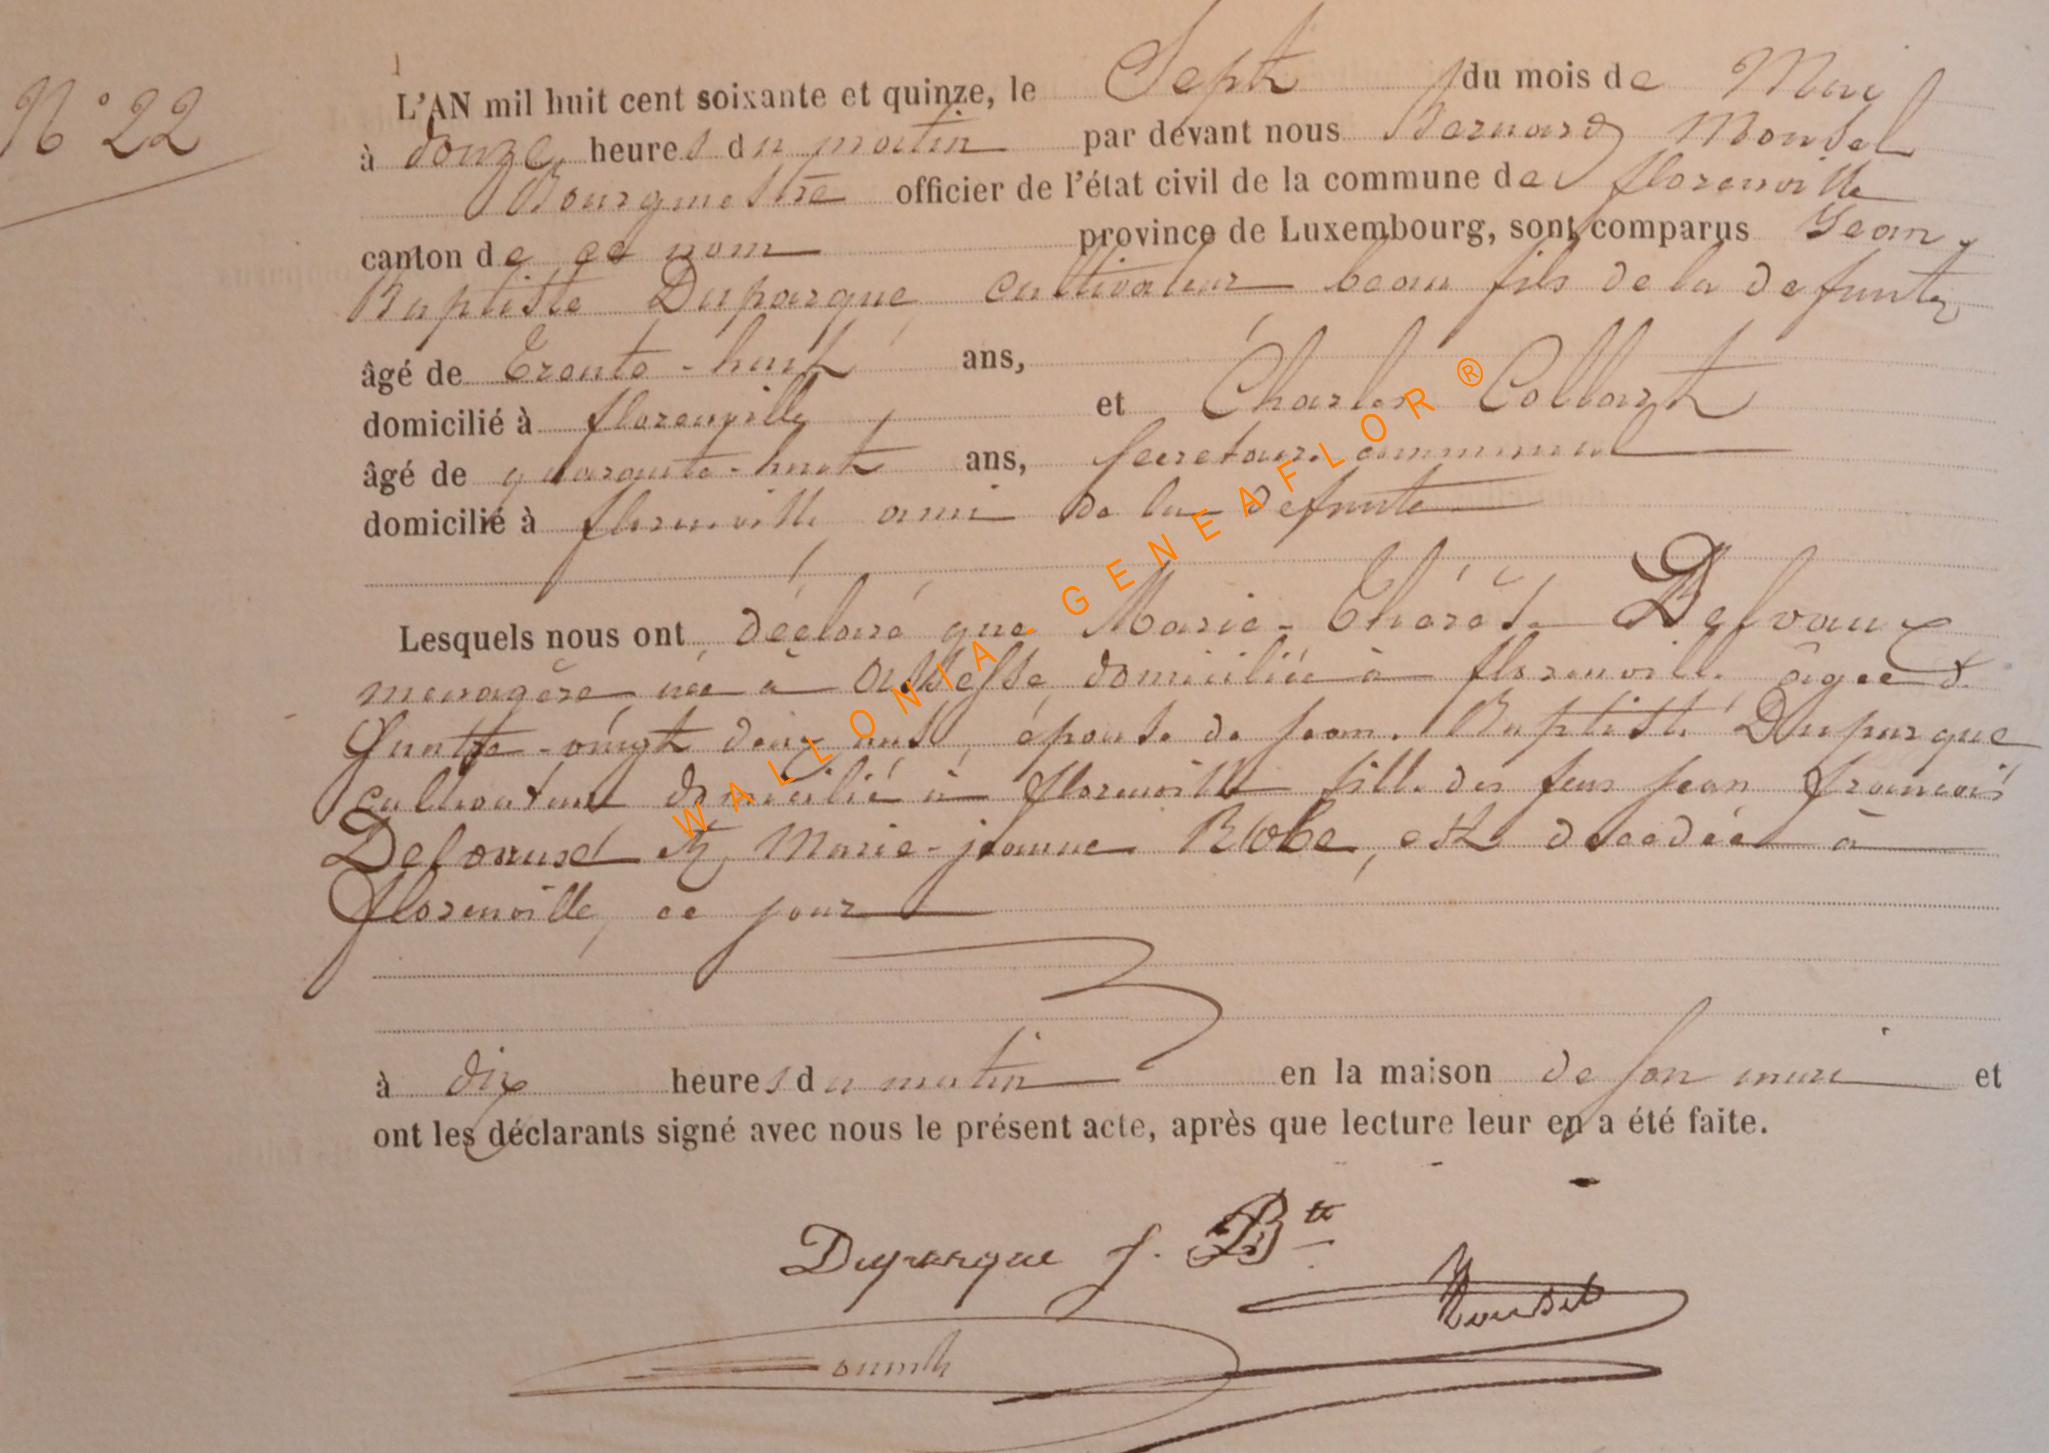 N° 22
L'AN mil huit cent soixante et quinze, le Sept du mois de Mai
à douze heures du matin par devant nous Bernard Mousel
Bourgmestre officier de l'état civil de la commune de florenville
canton de ce nom province de Luxembourg, sont comparus Jean
Baptiste Duparque cultivateur beau fils de la defunte
âgé de Trente-huit ans,
domicilié à florenville, et Charles Collart
âgé de quarante-huit ans, secretaire communal
domicilié à florenville, ami de la defunte
Lesquels nous ont déclaré que Marie-Thérèse Delvaux
menagère née à domiciliée à florenville âgée de
Quatre-vingt deux ans, épouse de jean Baptiste Duparque
cultivateur domicilié à florenville fille des feus jean françois
Delvaux et Marie-jeanne Robe, est decedée à
florenville, ce jour
à dix heures du matin en la maison de son mari et
ont les déclarants signé avec nous le présent acte, après que lecture leur en a été faite.
Duparque J. Bte
Mousel
WALLONIA GENEAFLOR ®